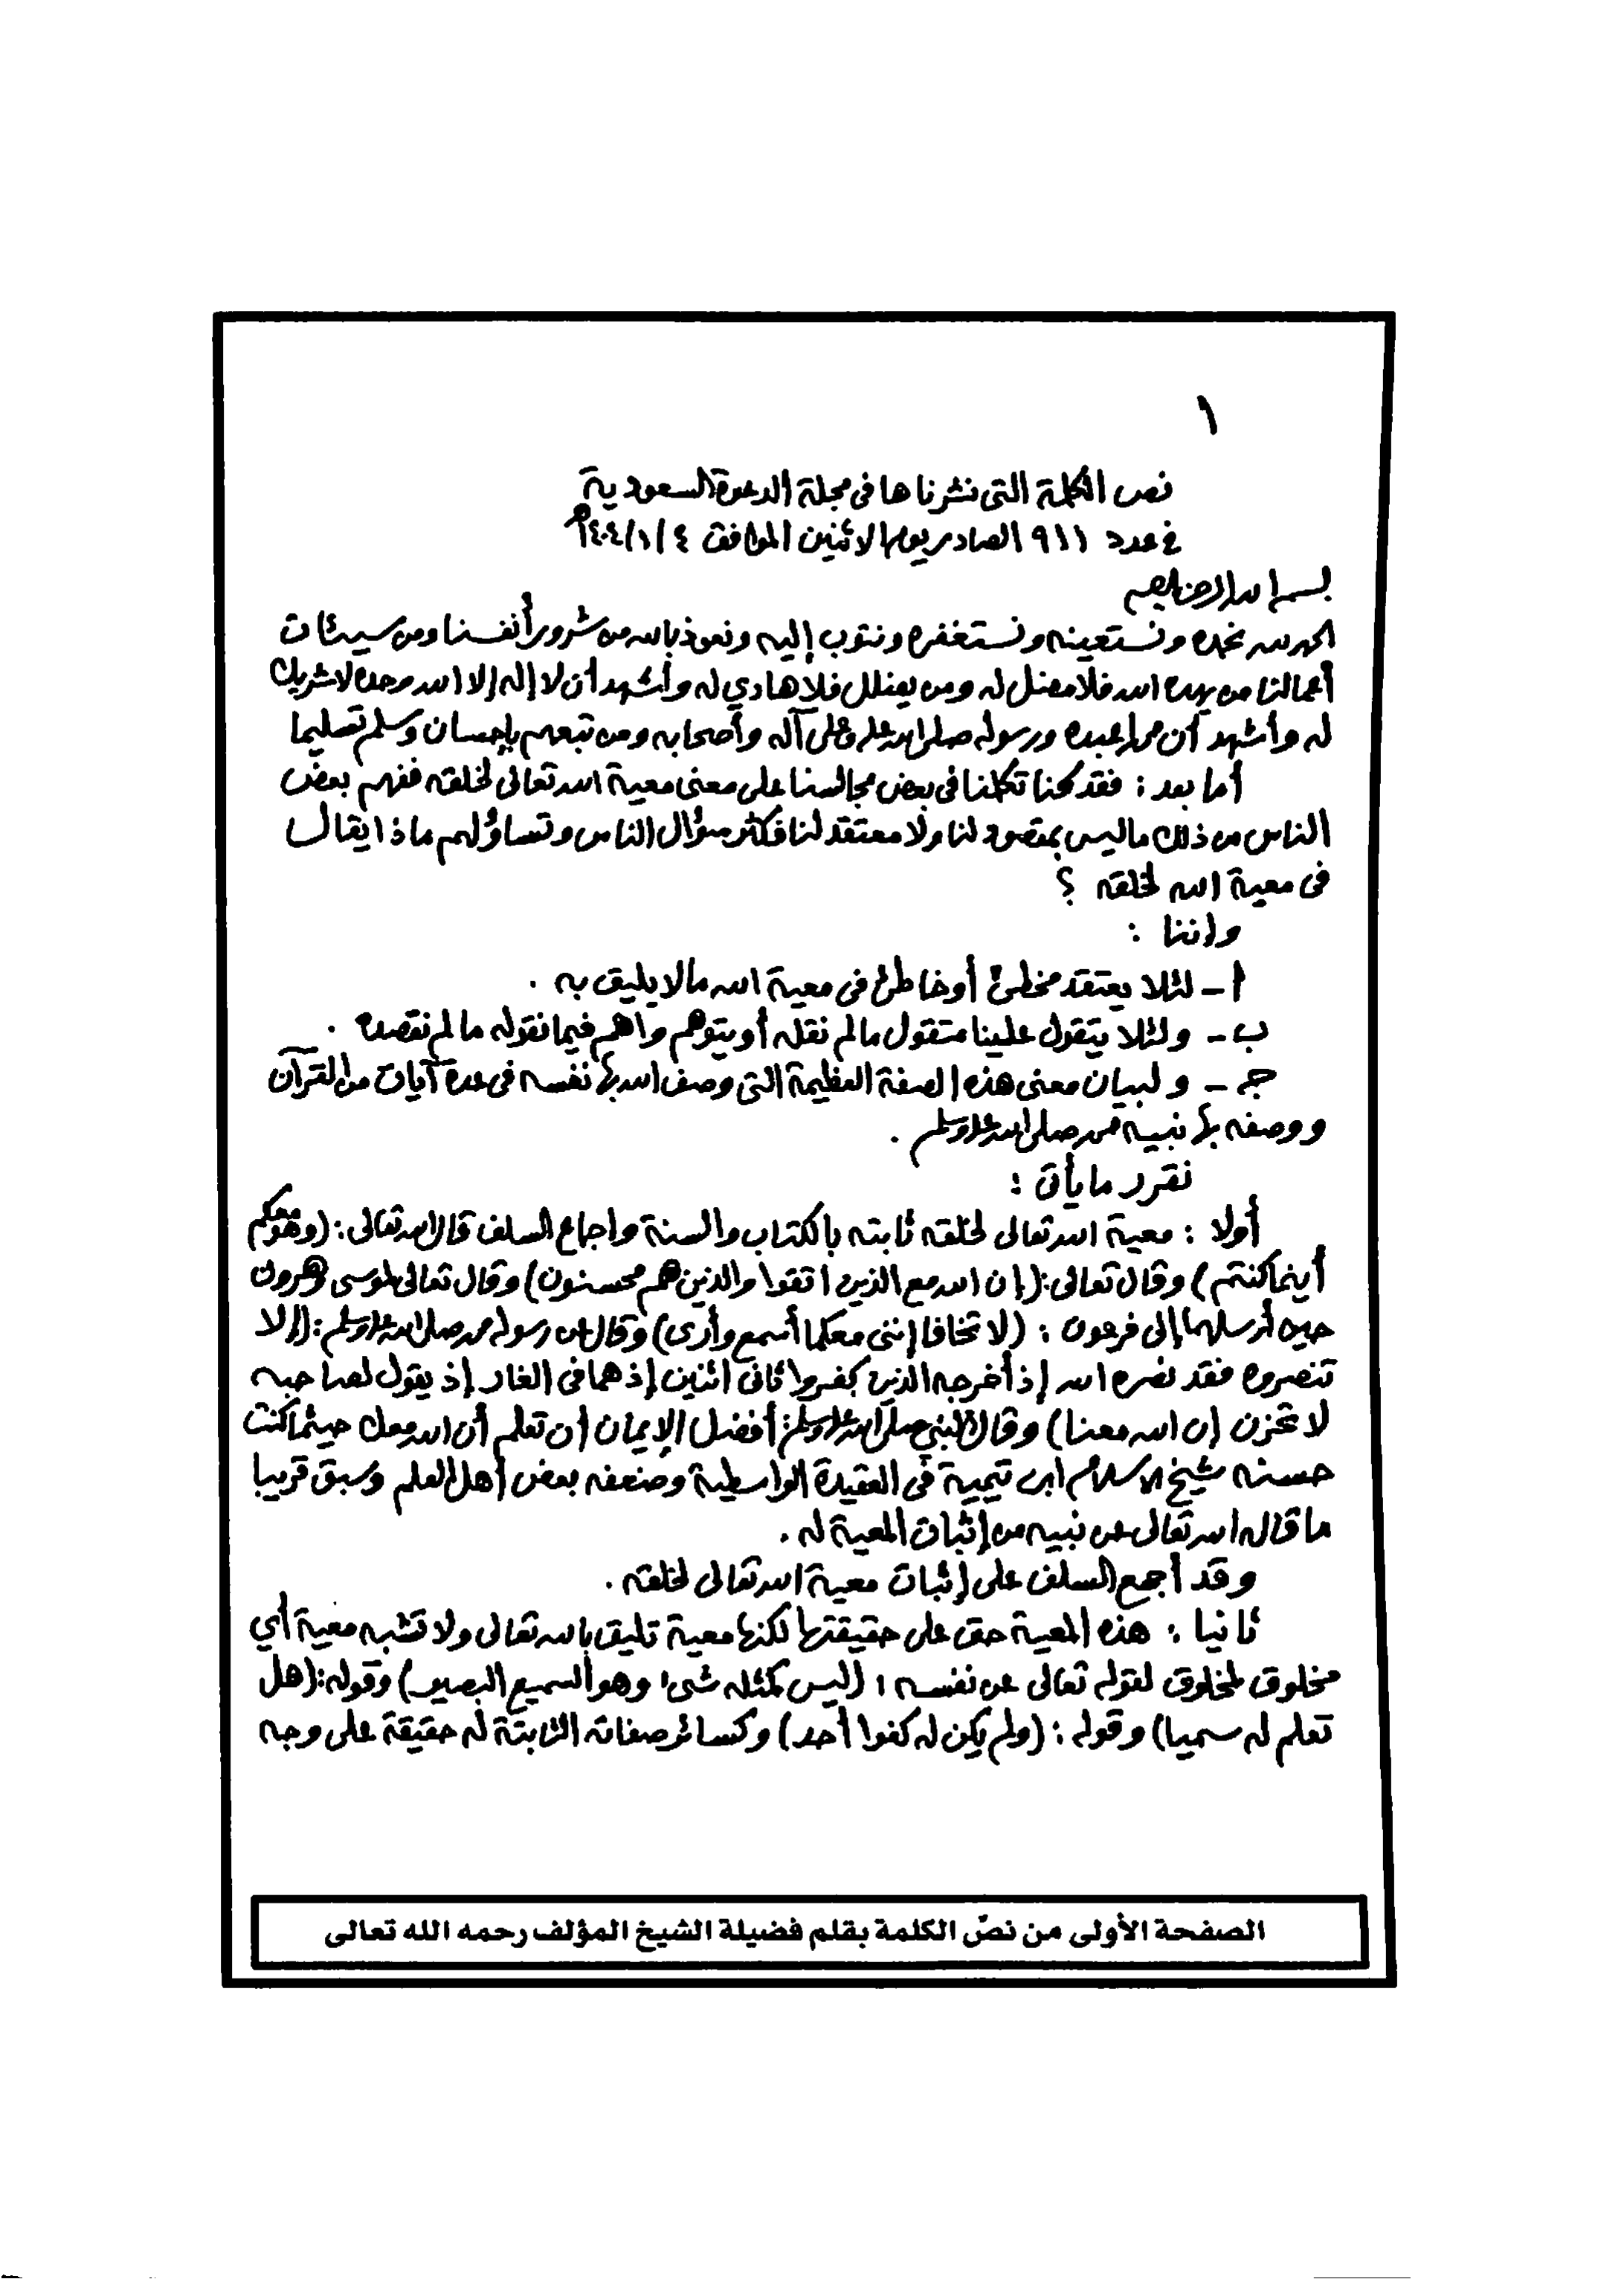 ١
نص الكلمة التى نشرناها فى مجلة الدعوة السعودية
فى عدد ٩١١ الصادر يوم الاثنين الموافق ٤/١/١٤٠٤هـ
بسم الله الرحمن الرحيم
الحمد لله نحمده ونستعينه ونستغفره ونتوب إليه ونعوذ بالله من شرور أنفسنا ومن سيئات
أعمالنا من يهده الله فلا مضل له ومن يضلل فلا هادي له وأشهد أن لا إله إلا الله وحده لا شريك
له وأشهد أن محمدا عبده ورسوله صلى الله عليه وعلى آله وأصحابه ومن تبعهم بإحسان وسلم تسليما
أما بعد : فقد كنا تكلمنا فى بعض مجالسنا على معنى معية الله تعالى لخلقه ففهم بعض
الناس من ذلك ما ليس بمقصود لنا ولا معتقد لنا فكثر سؤال الناس وتساؤلهم ماذا يقال
فى معية الله لخلقه ؟
وإننا :
أ - لئلا يعتقد مخطئ أو خاطئ فى معية الله ما لا يليق به .
ب - ولئلا يتقول علينا متقول ما لم نقله أو يتوهم واهم فيما نقوله ما لم نقصده .
جـ - ولبيان معنى هذه الصفة العظيمة التى وصف الله بها نفسه فى عدة آيات من القرآن
ووصفه بها نبيه محمد صلى الله عليه وسلم .
نقرر ما يأتى :
أولا : معية الله تعالى لخلقه ثابته بالكتاب والسنة واجماع السلف قال الله تعالى : (وهو معكم
أينما كنتم) وقال تعالى : (إن الله مع الذين اتقوا والذين هم محسنون) وقال تعالى لموسى وهرون
حين أرسلهما إلى فرعون : (لا تخافا إننى معكما أسمع وأرى) وقال عن رسوله محمد صلى الله عليه وسلم : (إلا
تنصروه فقد نصره الله إذ أخرجه الذين كفروا ثانى اثنين إذ هما فى الغار إذ يقول لصاحبه
لا تحزن إن الله معنا) وقال النبي صلى الله عليه وسلم : أفضل الإيمان أن تعلم أن الله معك حيثما كنت
حسنه شيخ الاسلام ابن تيمية فى العقيدة الواسطية وضعفه بعض أهل العلم وسبق قريبا
ما قاله الله تعالى عن نبيه من إثبات المعية له .
وقد أجمع السلف على إثبات معية الله تعالى لخلقه .
ثانيا : هذه المعية حق على حقيقتها لكنها معية تليق بالله تعالى ولا تشبه معية أي
مخلوق لمخلوق لقوله تعالى عن نفسه : (ليس كمثله شئ وهو السميع البصير) وقوله : (هل
تعلم له سميا) وقوله : (ولم يكن له كفوا أحد) وكسائر صفاته الثابتة له حقيقة على وجه
الصفحة الأولى من نصّ الكلمة بقلم فضيلة الشيخ المؤلف رحمه الله تعالى